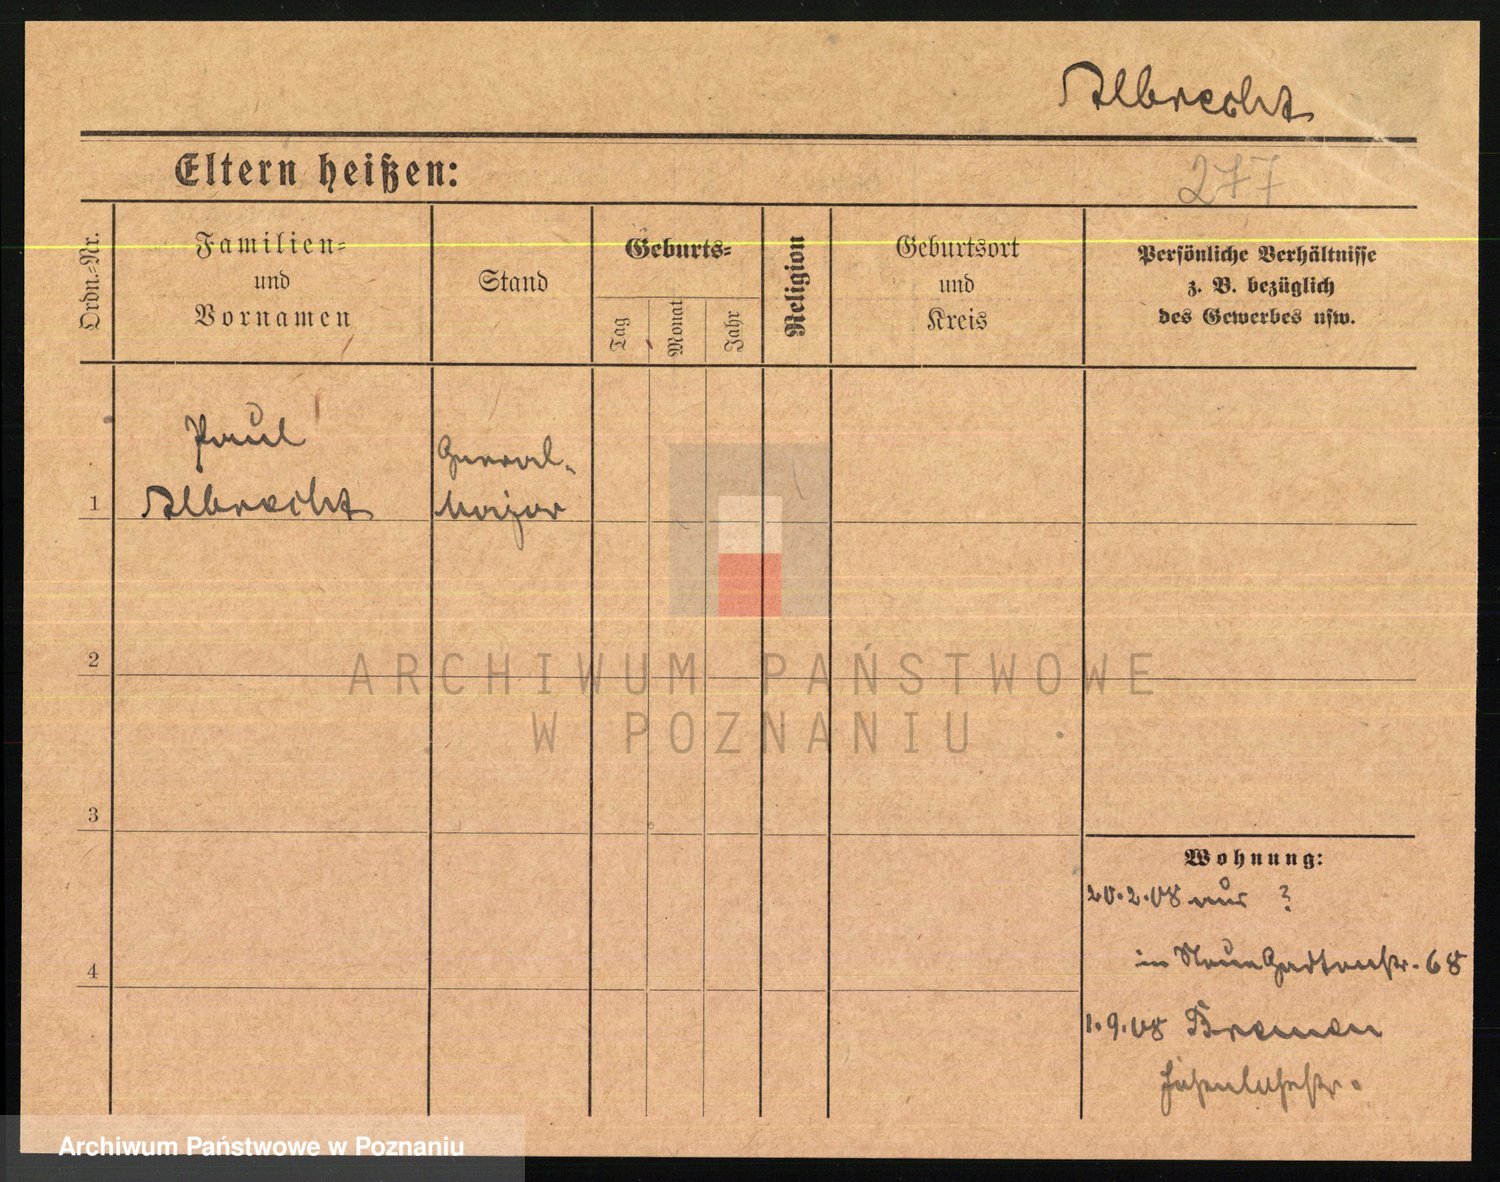 Albrecht
Eltern heißen:
277
Ordn.-Nr.
Familien-
und
Vornamen
Stand
Geburts-
Tag
Monat
Jahr
Religion
Geburtsort
und
Kreis
Persönliche Verhältnisse
z. B. bezüglich
des Gewerbes usw.
1
Paul
Albrecht
General-
Major
2
3
4
Wohnung:
20.2.08 aus ?
in Neue Gartenstr. 68
1.9.08 Bremen
ARCHIWUM PAŃSTWOWE
W POZNANIU
Archiwum Państwowe w Poznaniu